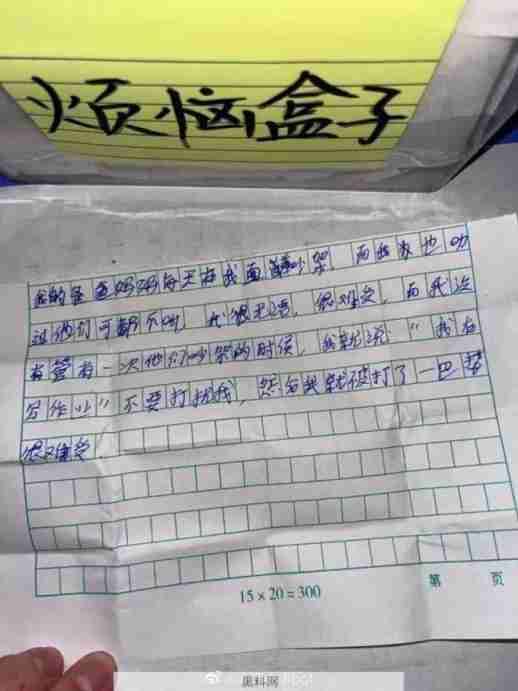 烦恼盒子
我的爸爸妈妈每天在我面前吵架，而我劝也劝
过他们可都不听，我很无语，很难受，而我没
有管有一次他们吵架的时候，我就说：“我在
写作业”不要打扰我，然后我就被打了一巴掌
很难受．
15×20=300
第 页
黑料网